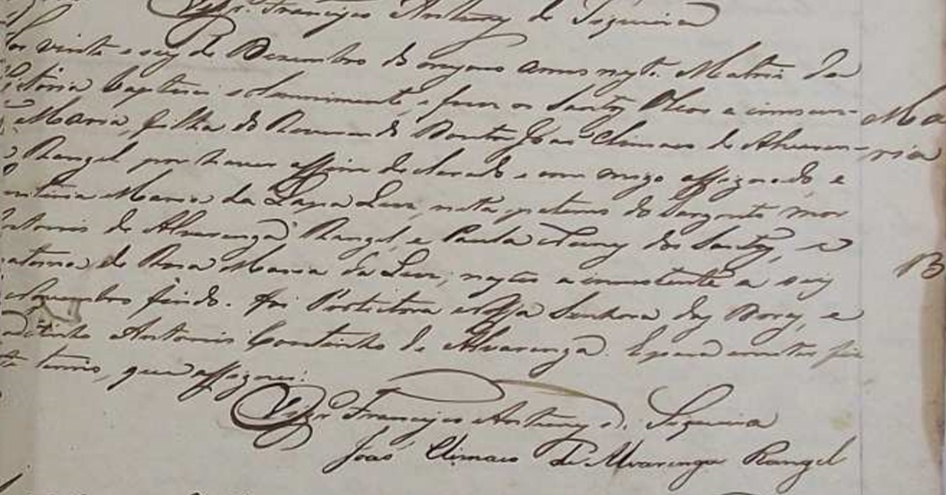 Vigr. Francisco Antunes de Siqueira
vinte e seis de Dezembro de annos nesta Matriz da
Victoria baptisei solennemente e puz os Santos Oleos a
Maria, filha do Reverendo Doutor João Climaco de Alvaren- Ma
Rangel por haver assim declarado e comigo assignado, e ria
Maria da Lapa Luz, neta paterna do Sargento mor
Antonio de Alvarenga Rangel, e Paula Nunes dos Santos, e
materna de Rosa Maria da Luz; nasceo a seis B
de Novembro findo. Foi Protectora nossa Senhora das Dores, e
Padrinho Antonio Coutinho de Alvarenga. E para constar fiz
termo, que assignei.
Vigr. Francisco Antunes de Siqueira
João Climaco de Alvarenga Rangel